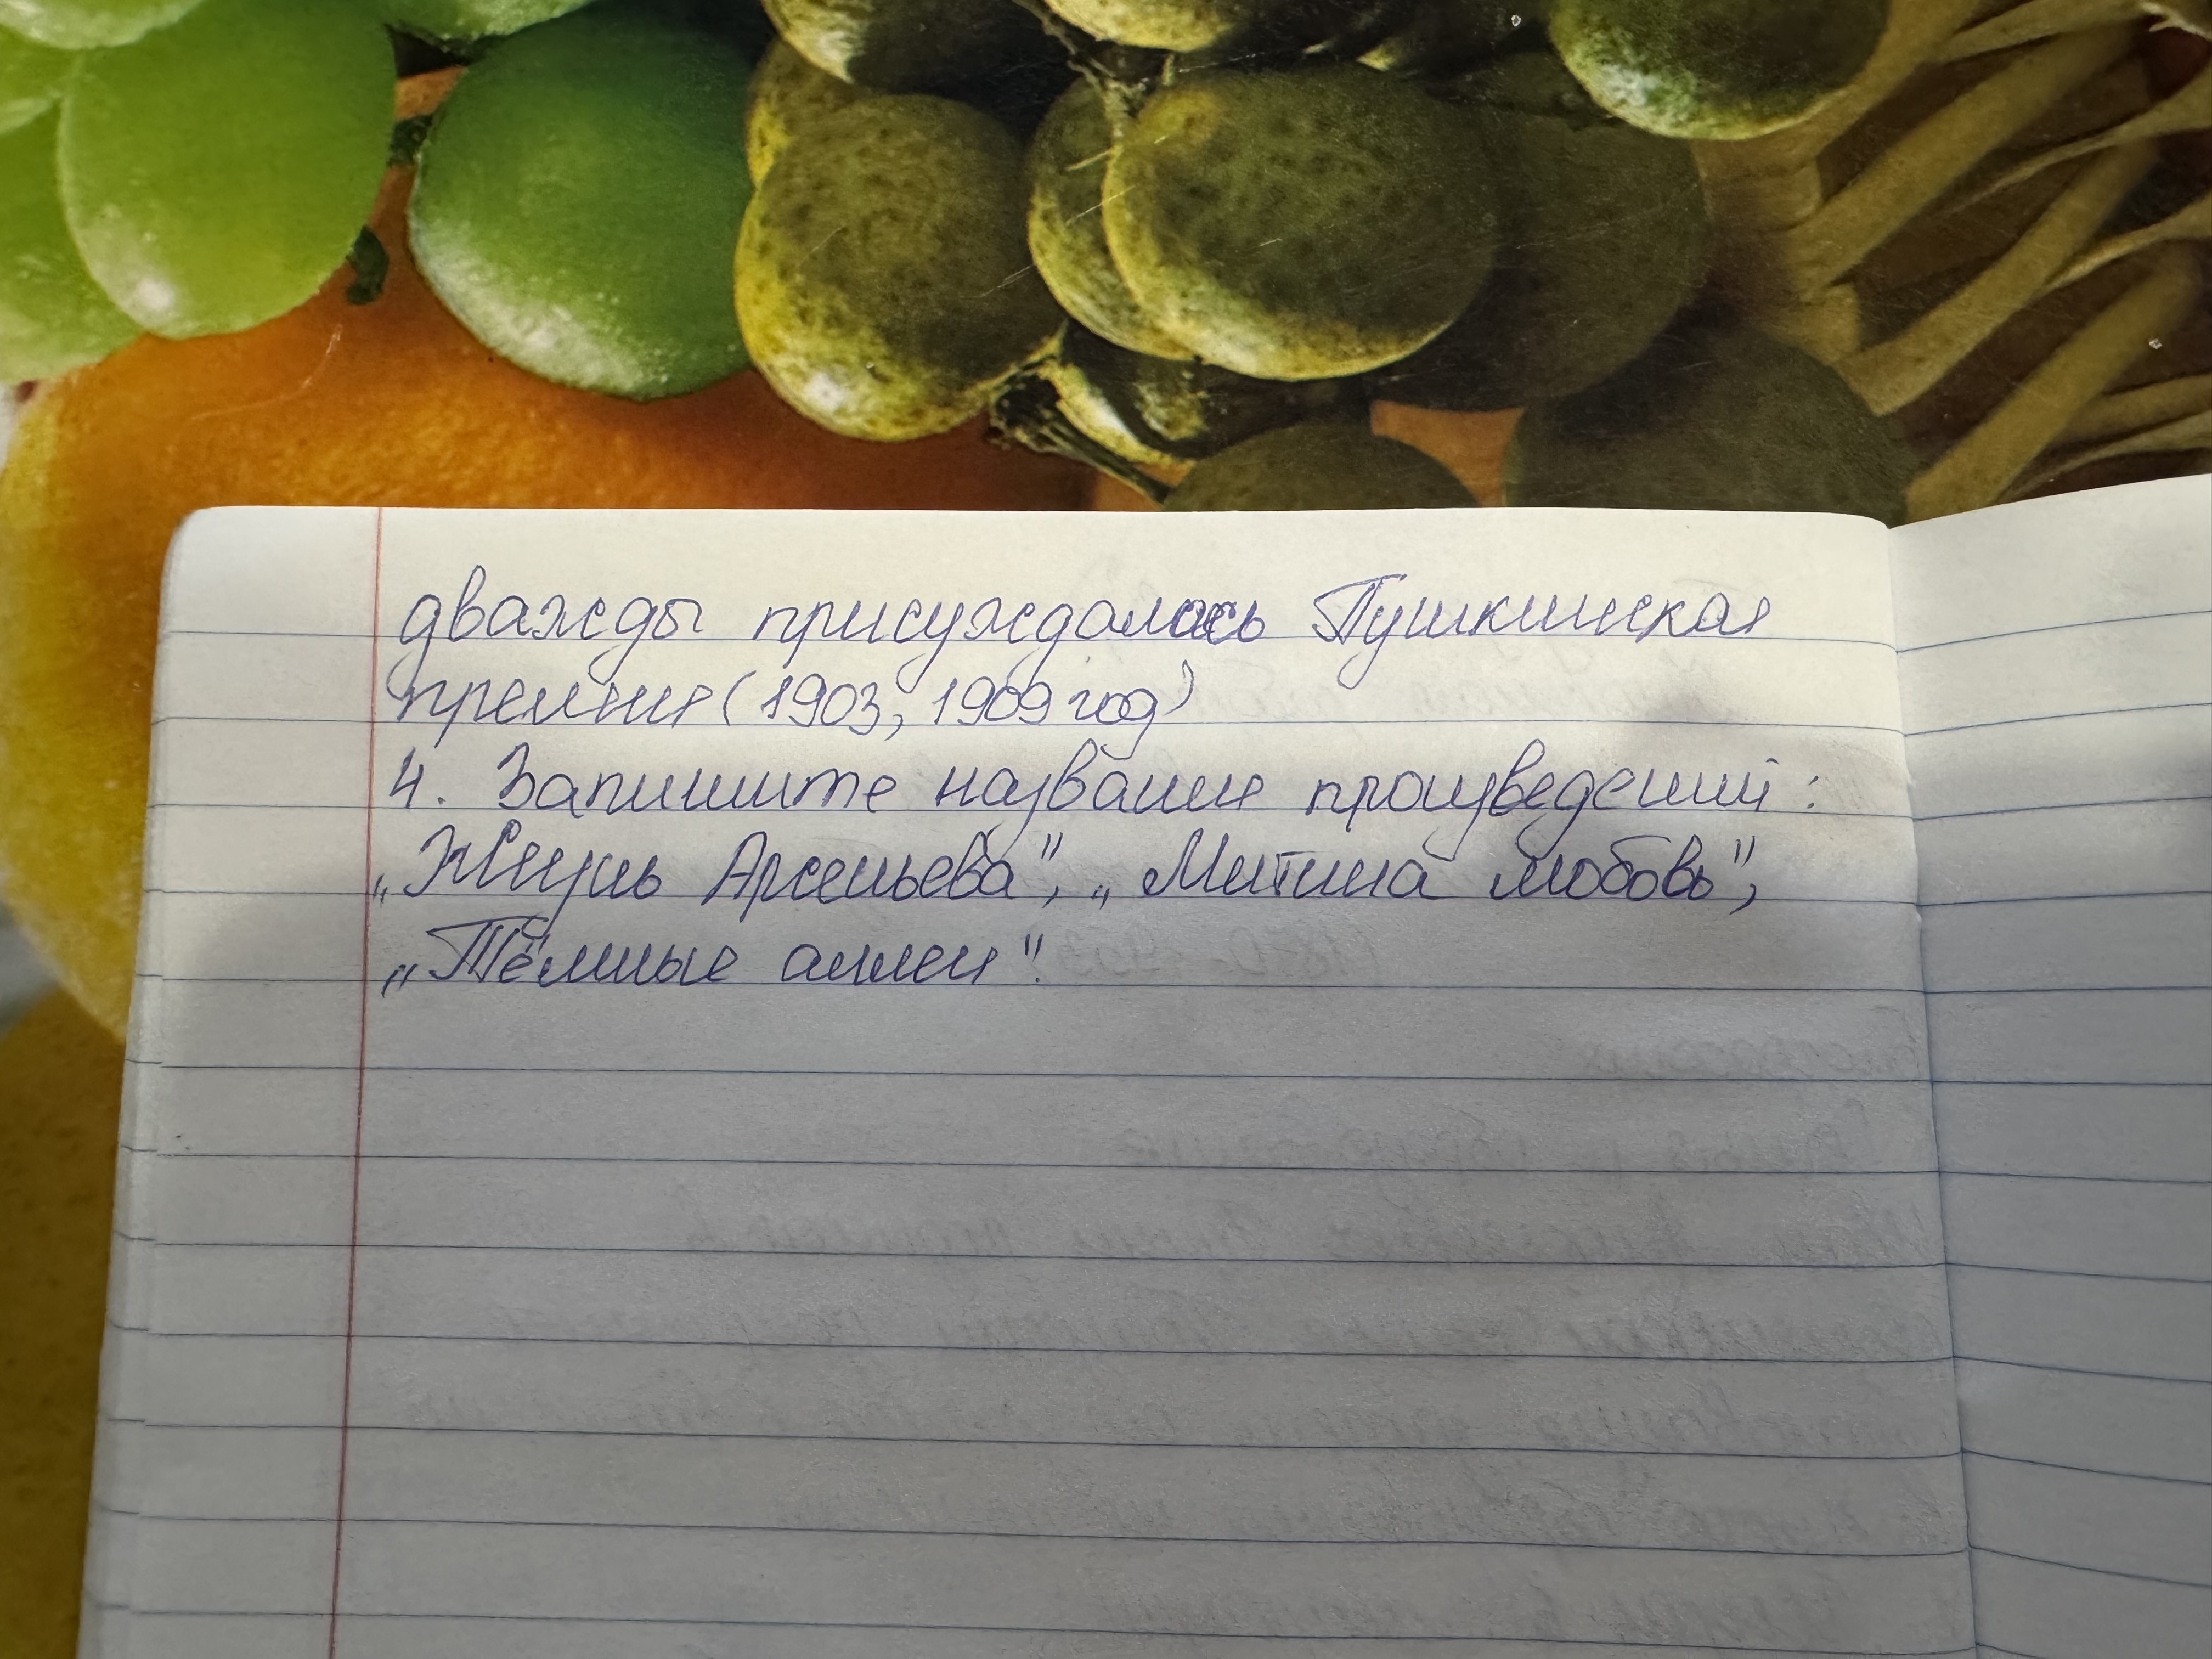 дважды присуждалась Пушкинская
премия (1903, 1909 год)
4. Запишите название произведений:
„Жизнь Арсеньева", „Митина любовь",
„Тёмные аллеи".